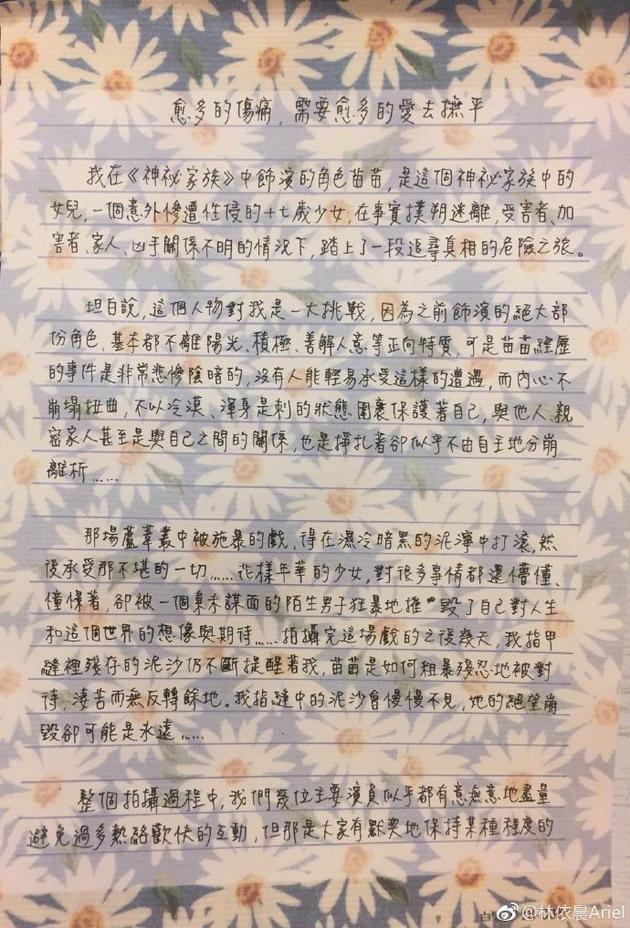 愈多的傷痛，需要愈多的愛去撫平
我在《神祕家族》中飾演的角色苗苗，是這個神祕家族中的
女兒，一個意外慘遭性侵的十七歲少女，在事實撲朔迷離，受害者、加
害者、家人、凶手關係不明的情況下，踏上了一段追尋真相的危險之旅。
坦白說，這個人物對我是一大挑戰，因為之前飾演的絕大部
份角色，基本都不離陽光、積極、善解人意等正向特質，可是苗苗經歷
的事件是非常悲慘陰暗的，沒有人能輕易承受這樣的遭遇，而內心不
崩塌扭曲，不以冷漠、渾身是刺的狀態圍裹保護著自己，與他人、親
密家人甚至是與自己之間的關係，也是掙扎著卻似乎不由自主地分崩
離析……
那場蘆葦叢中被施暴的戲，得在濕冷暗黑的泥濘中打滾，然
後承受那不堪的一切……花樣年華的少女，對很多事情都還懵懂、
憧憬著，卻被一個素未謀面的陌生男子狂暴地摧毀了自己對人生
和這個世界的想像與期待……拍攝完這場戲的之後幾天，我指甲
縫裡殘存的泥沙仍不斷提醒著我，苗苗是如何粗暴殘忍地被對
待，淒苦而無反轉餘地。我指縫中的泥沙會慢慢不見，她的絕望崩
毀卻可能是永遠……
整個拍攝過程中，我們幾位主要演員似乎都有意無意地盡量
避免過多熱絡歡快的互動，但那是大家有默契地保持某種程度的
@林依晨Ariel